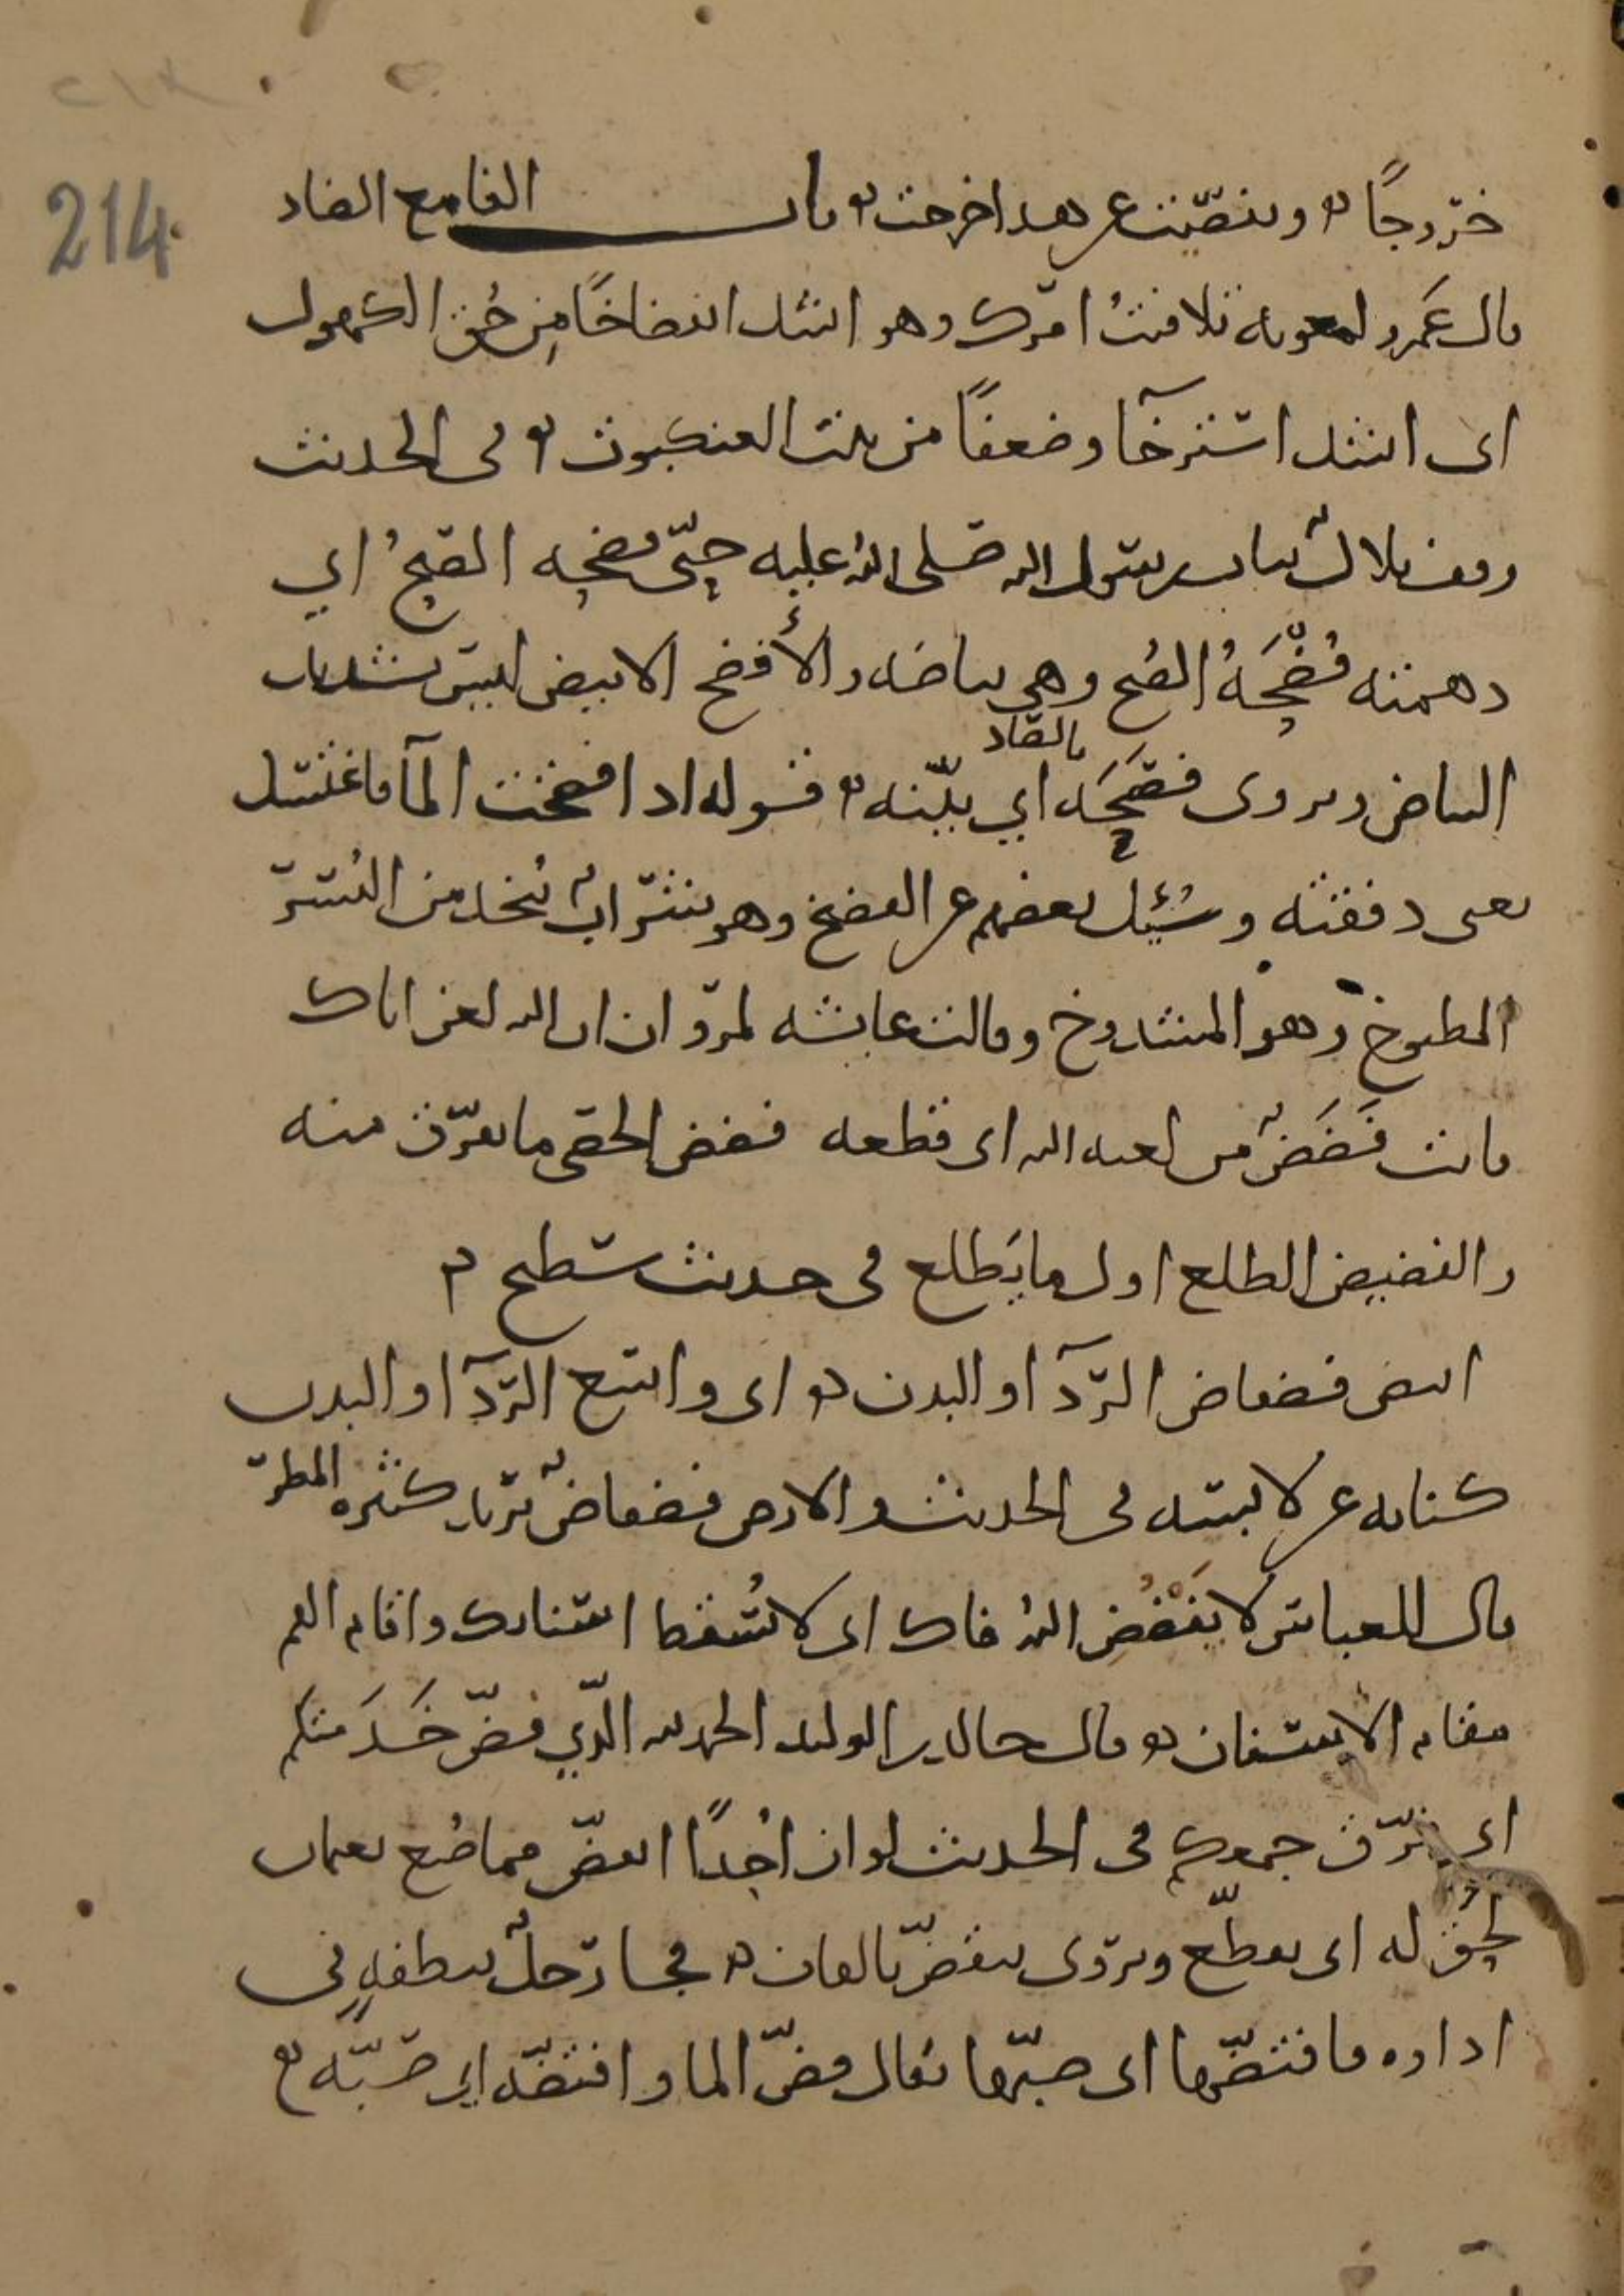 214
خروجًا وتفصّيت عن هذا خرجت باب الفا مع الضاد
قال عمرو لمعوية تلافيتُ امرك وهو اشد انفضاخًا من حُق الكهول
اي اشد استرخآ وضعفًا من بيت العنكبوت في الحديث
وقف بلالٌ بباب رسول الله صلى الله عليه حتّى فضحه الصبحُ اي
دهمته فُضْحَةُ الصُبح وهي بياضه والأفضح الابيض ليس بشديد
البياض ويروى فصَحَه بالصاد اي بيّنه قوله اذا فضخت المآ فاغتسل
يعني دفقته وسُئِل بعضهم عن الفضيخ وهو شرابٌ يُتخذ من البُسْر
المطبوخ وهو المشدوخ وقالت عايشه لمروان ان الله لعن اباك
فانت فَضَضٌ من لعنه الله اى قطعه فضض الحصى ما تفرّق منه
والفضيض الطلع اول ما يَطلع في حديث سطيح
ابيض فضفاض الردآ والبدن اى واسع الردآ والبدن
كنايه عن لابسه في الحديث والارض فضفاضٌ يريد كثره المطر
قال للعباس لا يَفْضُضِ اللهُ فاك اى لا تُسْقط اسنانك واقام الفم
مقام الاسنان وقال خالد بن الوليد الحمد لله الّذي فضّ خَدَمَتكم
اى فرّق جمعكم في الحديث لو ان اُحُدًا انفضّ مما صُنع بعمان
لحُقّ له اى تقطّع ويروى ينقضّ بالقاف فجا رجلٌ بنطفهٍ في
اداوه فافتضّها اى صبّها يقال فضّ الما وافتضّه اي صبّه